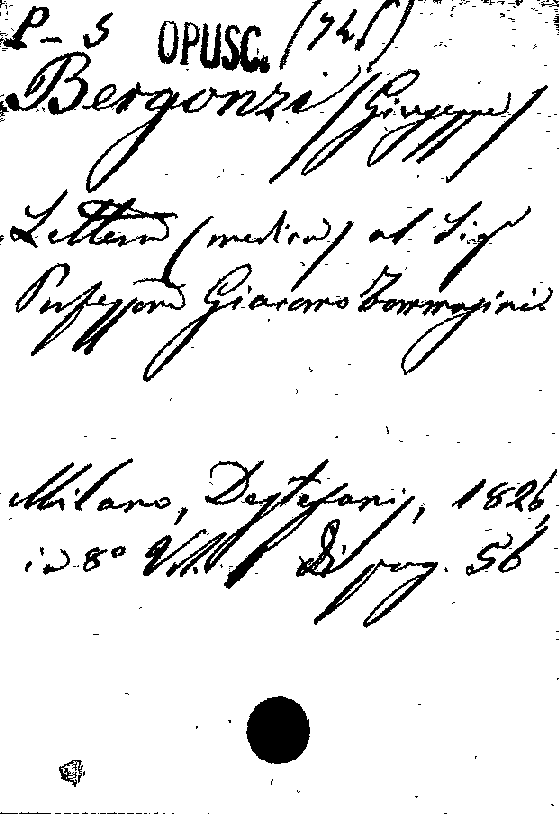 P-S OPUSC. (725)
Bergonzi (Giuseppe)
Lettera (medica) al Sigr
Professore Giacomo Tommasini
Milano, Destefani, 1826,
in 8º Vol. 1 di pag. 56